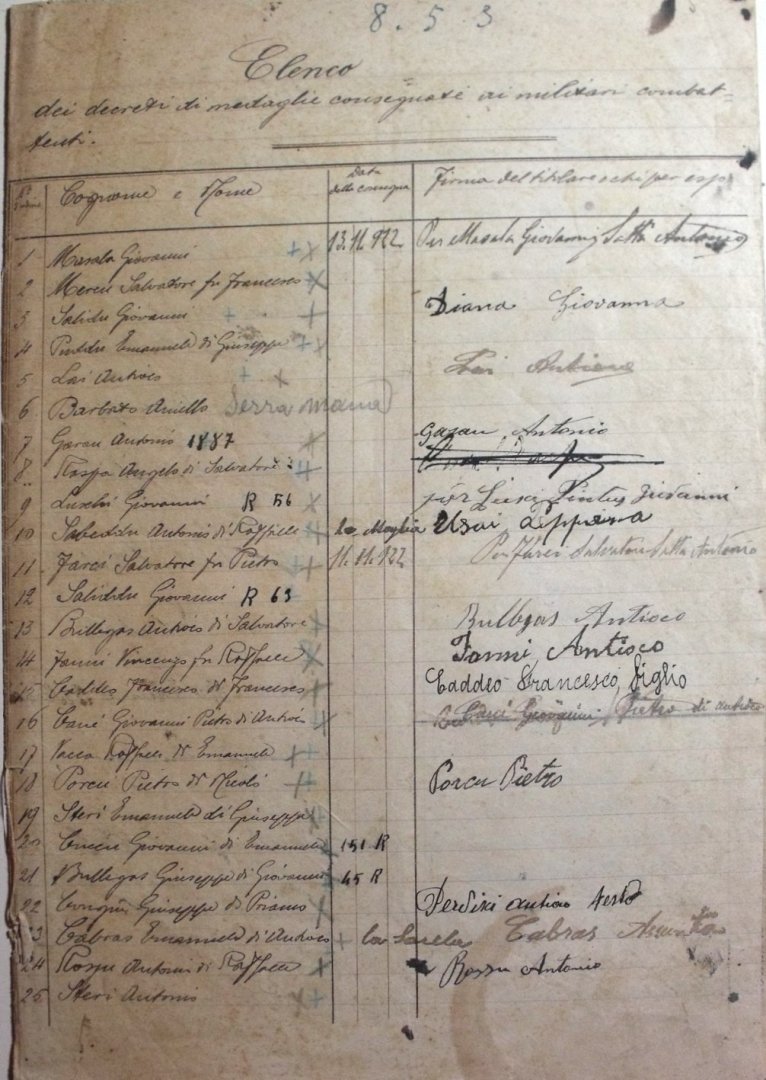 8. 5 3
Elenco
dei decreti di medaglie consegnate ai militari combat-
tenti.
Cognome e Nome Data della consegna Firma del titolare o chi per esso
1 Masala Giovanni 13.11.922 Per Masala Giovanni Satta Antonio
2 Mereu Salvatore fu Francesco
3 Saliddu Giovanni Diana Giovanna
4 Puddu Emanuele di Giuseppe
5 Lai Antioco Lai Antioco
6 Barbato Aniello Serramanna
7 Garau Antonio 1887 Garau Antonio
8 Raspa Angelo di Salvatore
9 Luschi Giovanni R 56 per Pintus Giovanni
10 Antonio di Raffaele la Moglia Usai Peppina
11 Farci Salvatore fu Pietro 11.11.922 Per Farci Salvatore Satta Antonio
12 Saliddu Giovanni R 63
13 Bullegas Antioco di Salvatore Bullegas Antioco
14 Fanni Vincenzo fu Raffaele Fanni Antioco
15 Caddeo Francesco di Francesco Caddeo Francesco, figlio
16 Giovanni Pietro di Antioco Pietro di Antioco
17 Vacca Raffaele di Emanuele
18 Porcu Pietro di Nicolò Porcu Pietro
19 Steri Emanuele di Giuseppe
20 Giovanni di Emanuele 151 R
21 Bullegas Giuseppe di Giovanni 45 R
22 Giuseppe di Priamo
23 Cabras Emanuele di Antioco la Sorella Cabras Assunta
24 Antonio di Raffaele Antonio
25 Steri Antonio